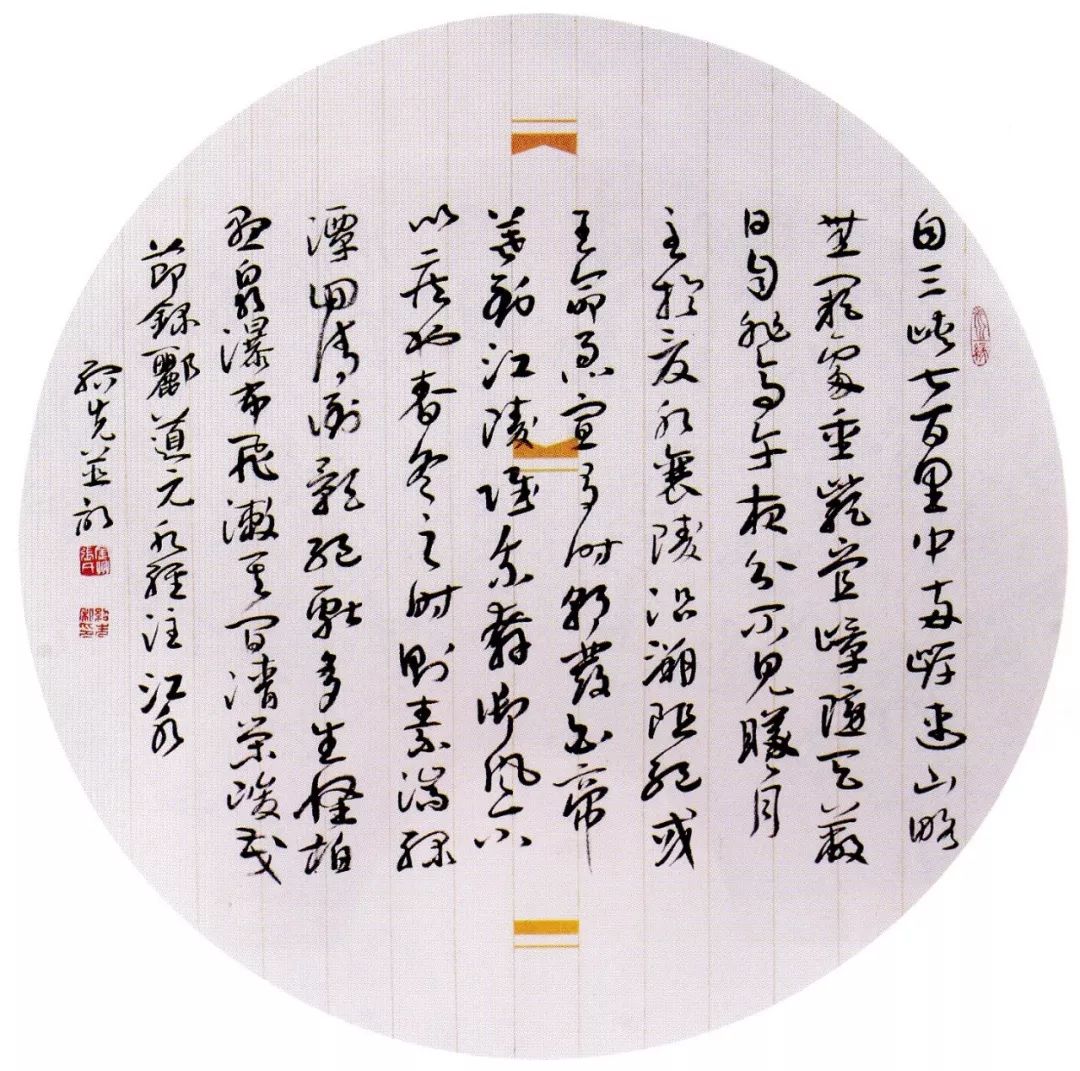 自三峽七百里中兩岸連山略
無闕處重巖疊嶂隱天蔽
日自非亭午夜分不見曦月
至於夏水襄陵沿溯阻絕或
王命急宣有時朝發白帝
暮到江陵雖乘奔御風不
以疾也春冬之時則素湍綠
潭回清倒影絕巘多生怪柏
懸泉瀑布飛漱其間清榮峻茂
節錄酈道元水經注江水